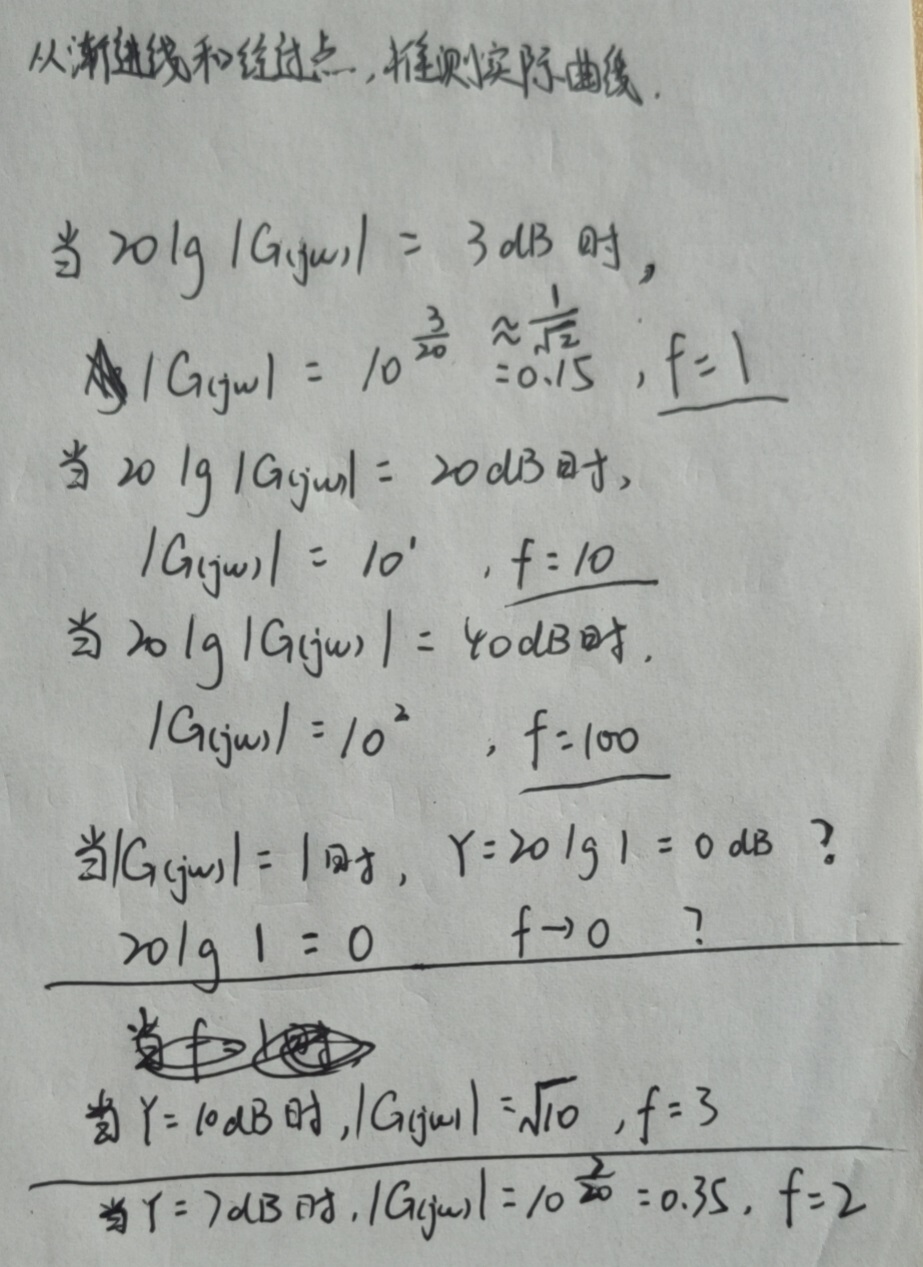 从渐进线和经过点，推测实际曲线．
当 20 lg |G(jω)| = 3 dB 时，
|G(jω)| = 10^(3/20) ≈ 1/√2 = 0.15 , f = 1
当 20 lg |G(jω)| = 20 dB 时,
|G(jω)| = 10^1 , f = 10
当 20 lg |G(jω)| = 40 dB 时.
|G(jω)| = 10^2 , f = 100
当|G(jω)| = 1 时, Y = 20 lg 1 = 0 dB ?
20 lg 1 = 0 f → 0 ?
当 Y = 10 dB 时, |G(jω)| = √10 , f = 3
当 Y = 7 dB 时. |G(jω)| = 10^(7/20) = 0.35 . f = 2